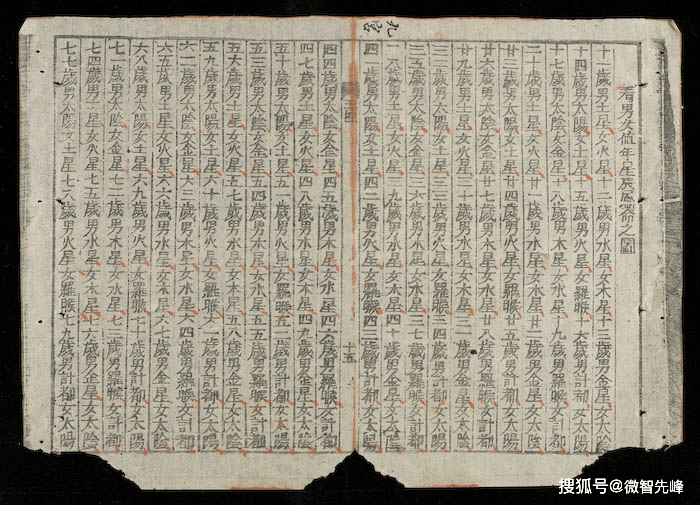 九宮
看男女值年星辰属命之圖
十一歲男土星女火星十二歲男水星女木星十三歲男金星女太陰
十四歲男太陽女土星十五歲男火星女羅睺十六歲男計都女太陽
十七歲男太陰女金星十八歲男木星女水星十九歲男羅睺女計都
二十歲男土星女火星廿一歲男水星女木星廿二歲男金星女太陰
廿三歲男太陽女土星廿四歲男火星女羅睺廿五歲男計都女太陽
廿六歲男太陰女金星廿七歲男木星女水星廿八歲男羅睺女計都
廿九歲男土星女火星三十歲男水星女木星三一歲男金星女太陰
三二歲男太陽女土星三三歲男火星女羅睺三四歲男計都女太陽
三五歲男太陰女金星三六歲男木星女水星三七歲男羅睺女計都
三八歲男土星女火星三九歲男水星女木星四十歲男金星女太陰
四一歲男太陽女土星四二歲男火星女羅睺四三歲男計都女太陽
十五
四四歲男太陰女金星四五歲男木星女水星四六歲男羅睺女計都
四七歲男土星女火星四八歲男水星女木星四九歲男金星女太陰
五十歲男太陽女土星五一歲男火星女羅睺五二歲男計都女太陽
五三歲男太陰女金星五四歲男木星女水星五五歲男羅睺女計都
五六歲男土星女火星五七歲男水星女木星五八歲男金星女太陰
五九歲男太陽女土星六十歲男火星女羅睺六一歲男計都女太陽
六二歲男太陰女金星六三歲男木星女水星六四歲男羅睺女計都
六五歲男土星女火星六六歲男水星女木星六七歲男金星女太陰
六八歲男太陽女土星六九歲男火星女羅睺七十歲男計都女太陽
七一歲男太陰女金星七二歲男木星女水星七三歲男羅睺女計都
七四歲男土星女火星七五歲男水星女木星七六歲男金星女太陰
七七歲男太陽女土星七八歲男火星女羅睺七九歲男計都女太陽
搜狐号@微智先峰